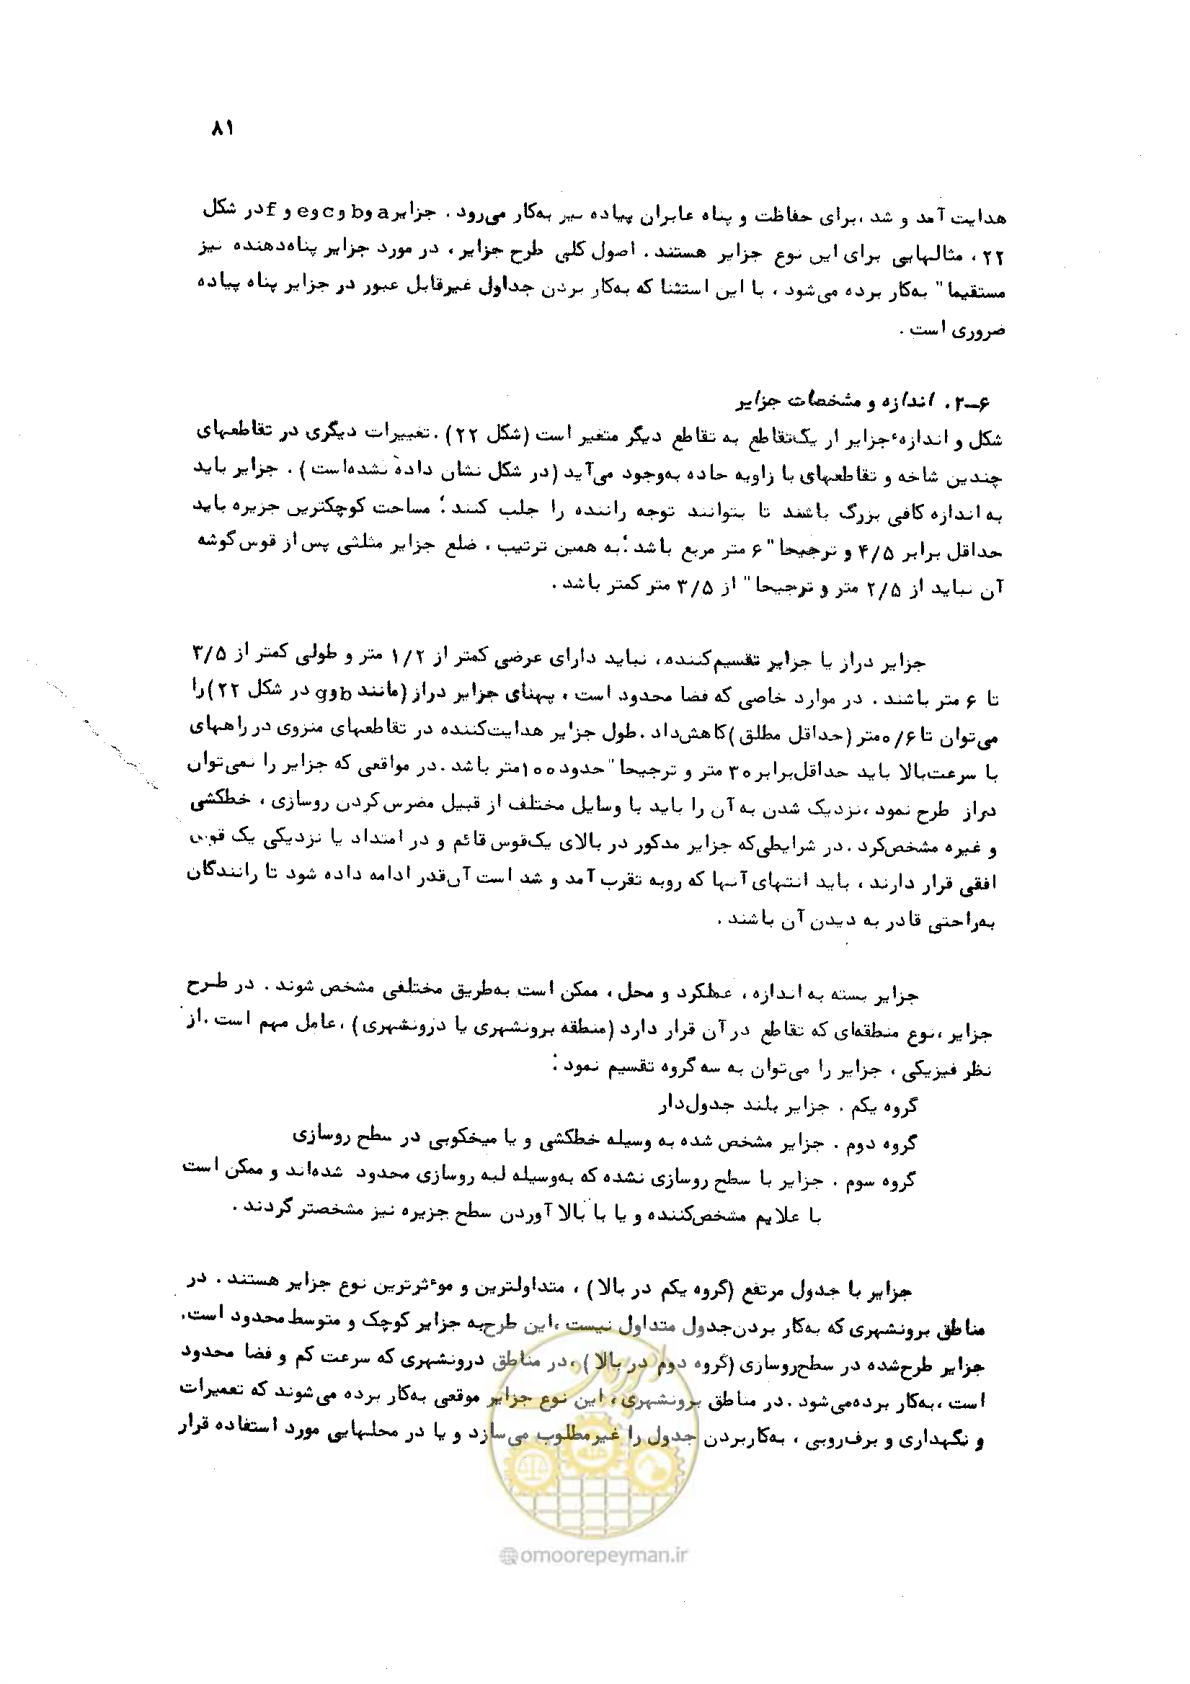 ۸۱
هدایت آمد و شد ،برای حفاظت و پناه عابران پیاده نیز به‌کار می‌رود . جزایر a و b و c و e و f در شکل
۲۲ ، مثالهایی برای این نوع جزایر هستند . اصول کلی طرح جزایر ، در مورد جزایر پناه‌دهنده نیز
مستقیما" به‌کار برده می‌شود ، با این استثنا که به‌کار بردن جداول غیرقابل عبور در جزایر پناه پیاده
ضروری است .
۶-۲. اندازه و مشخصات جزایر
شکل و اندازهء جزایر از یک‌تقاطع به تقاطع دیگر متغیر است (شکل ۲۲) .تغییرات دیگری در تقاطعهای
چندین شاخه و تقاطعهای با زاویه حاده به‌وجود می‌آید (در شکل نشان داده نشده‌است ) . جزایر باید
به اندازه کافی بزرگ باشند تا بتوانند توجه راننده را جلب کنند ؛ مساحت کوچکترین جزیره باید
حداقل برابر ۴/۵ و ترجیحا" ۶ متر مربع باشد ؛به همین ترتیب ، ضلع جزایر مثلثی پس از قوس‌گوشه
آن نباید از ۲/۵ متر و ترجیحا" از ۳/۵ متر کمتر باشد .
جزایر دراز یا جزایر تقسیم‌کننده، نباید دارای عرضی کمتر از ۱/۲ متر و طولی کمتر از ۳/۵
تا ۶ متر باشند . در موارد خاصی که فضا محدود است ، پهنای جزایر دراز (مانند b و g در شکل ۲۲) را
می‌توان تا ۰/۶ متر (حداقل مطلق )کاهش‌داد .طول جزایر هدایت‌کننده در تقاطعهای منزوی در راههای
با سرعت‌بالا باید حداقل‌برابر ۳۰ متر و ترجیحا" حدود ۱۰۰ متر باشد .در مواقعی که جزایر را نمی‌توان
دراز طرح نمود ،نزدیک شدن به آن را باید با وسایل مختلف از قبیل مضرس‌کردن روسازی ، خطکشی
و غیره مشخص‌کرد .در شرایطی‌که جزایر مذکور در بالای یک‌قوس قائم و در امتداد یا نزدیکی یک قوس
افقی قرار دارند ، باید انتهای آنها که روبه تقرب آمد و شد است آن‌قدر ادامه داده شود تا رانندگان
به‌راحتی قادر به دیدن آن باشند .
جزایر بسته به اندازه ، عملکرد و محل ، ممکن است به‌طریق مختلفی مشخص شوند . در طرح
جزایر ،نوع منطقه‌ای که تقاطع در آن قرار دارد (منطقه برونشهری یا درونشهری ) ،عامل مهم است .از
نظر فیزیکی ، جزایر را می‌توان به سه گروه تقسیم نمود :
گروه یکم . جزایر بلند جدول‌دار
گروه دوم . جزایر مشخص شده به وسیله خطکشی و یا میخکوبی در سطح روسازی
گروه سوم . جزایر با سطح روسازی نشده که به‌وسیله لبه روسازی محدود شده‌اند و ممکن است
با علایم مشخص‌کننده و یا با بالا آوردن سطح جزیره نیز مشخصتر گردند .
جزایر با جدول مرتفع (گروه یکم در بالا ) ، متداولترین و موءثرترین نوع جزایر هستند . در
مناطق برونشهری که به‌کار بردن‌جدول متداول نیست ،این طرح‌به جزایر کوچک و متوسط محدود است.
جزایر طرح‌شده در سطح‌روسازی (گروه دوم در بالا ) ،در مناطق درونشهری که سرعت کم و فضا محدود
است ،به‌کار برده‌می‌شود .در مناطق برونشهری ، این نوع جزایر موقعی به‌کار برده می‌شوند که تعمیرات
و نگهداری و برف‌روبی ، به‌کاربردن جدول را غیرمطلوب می‌سازد و یا در محلهایی مورد استفاده قرار
@omoorepeyman.ir